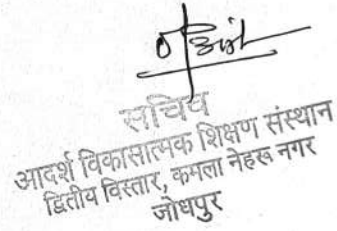 सचिव
आदर्श विकासात्मक शिक्षण संस्थान
द्वितीय विस्तार, कमला नेहरू नगर
जोधपुर